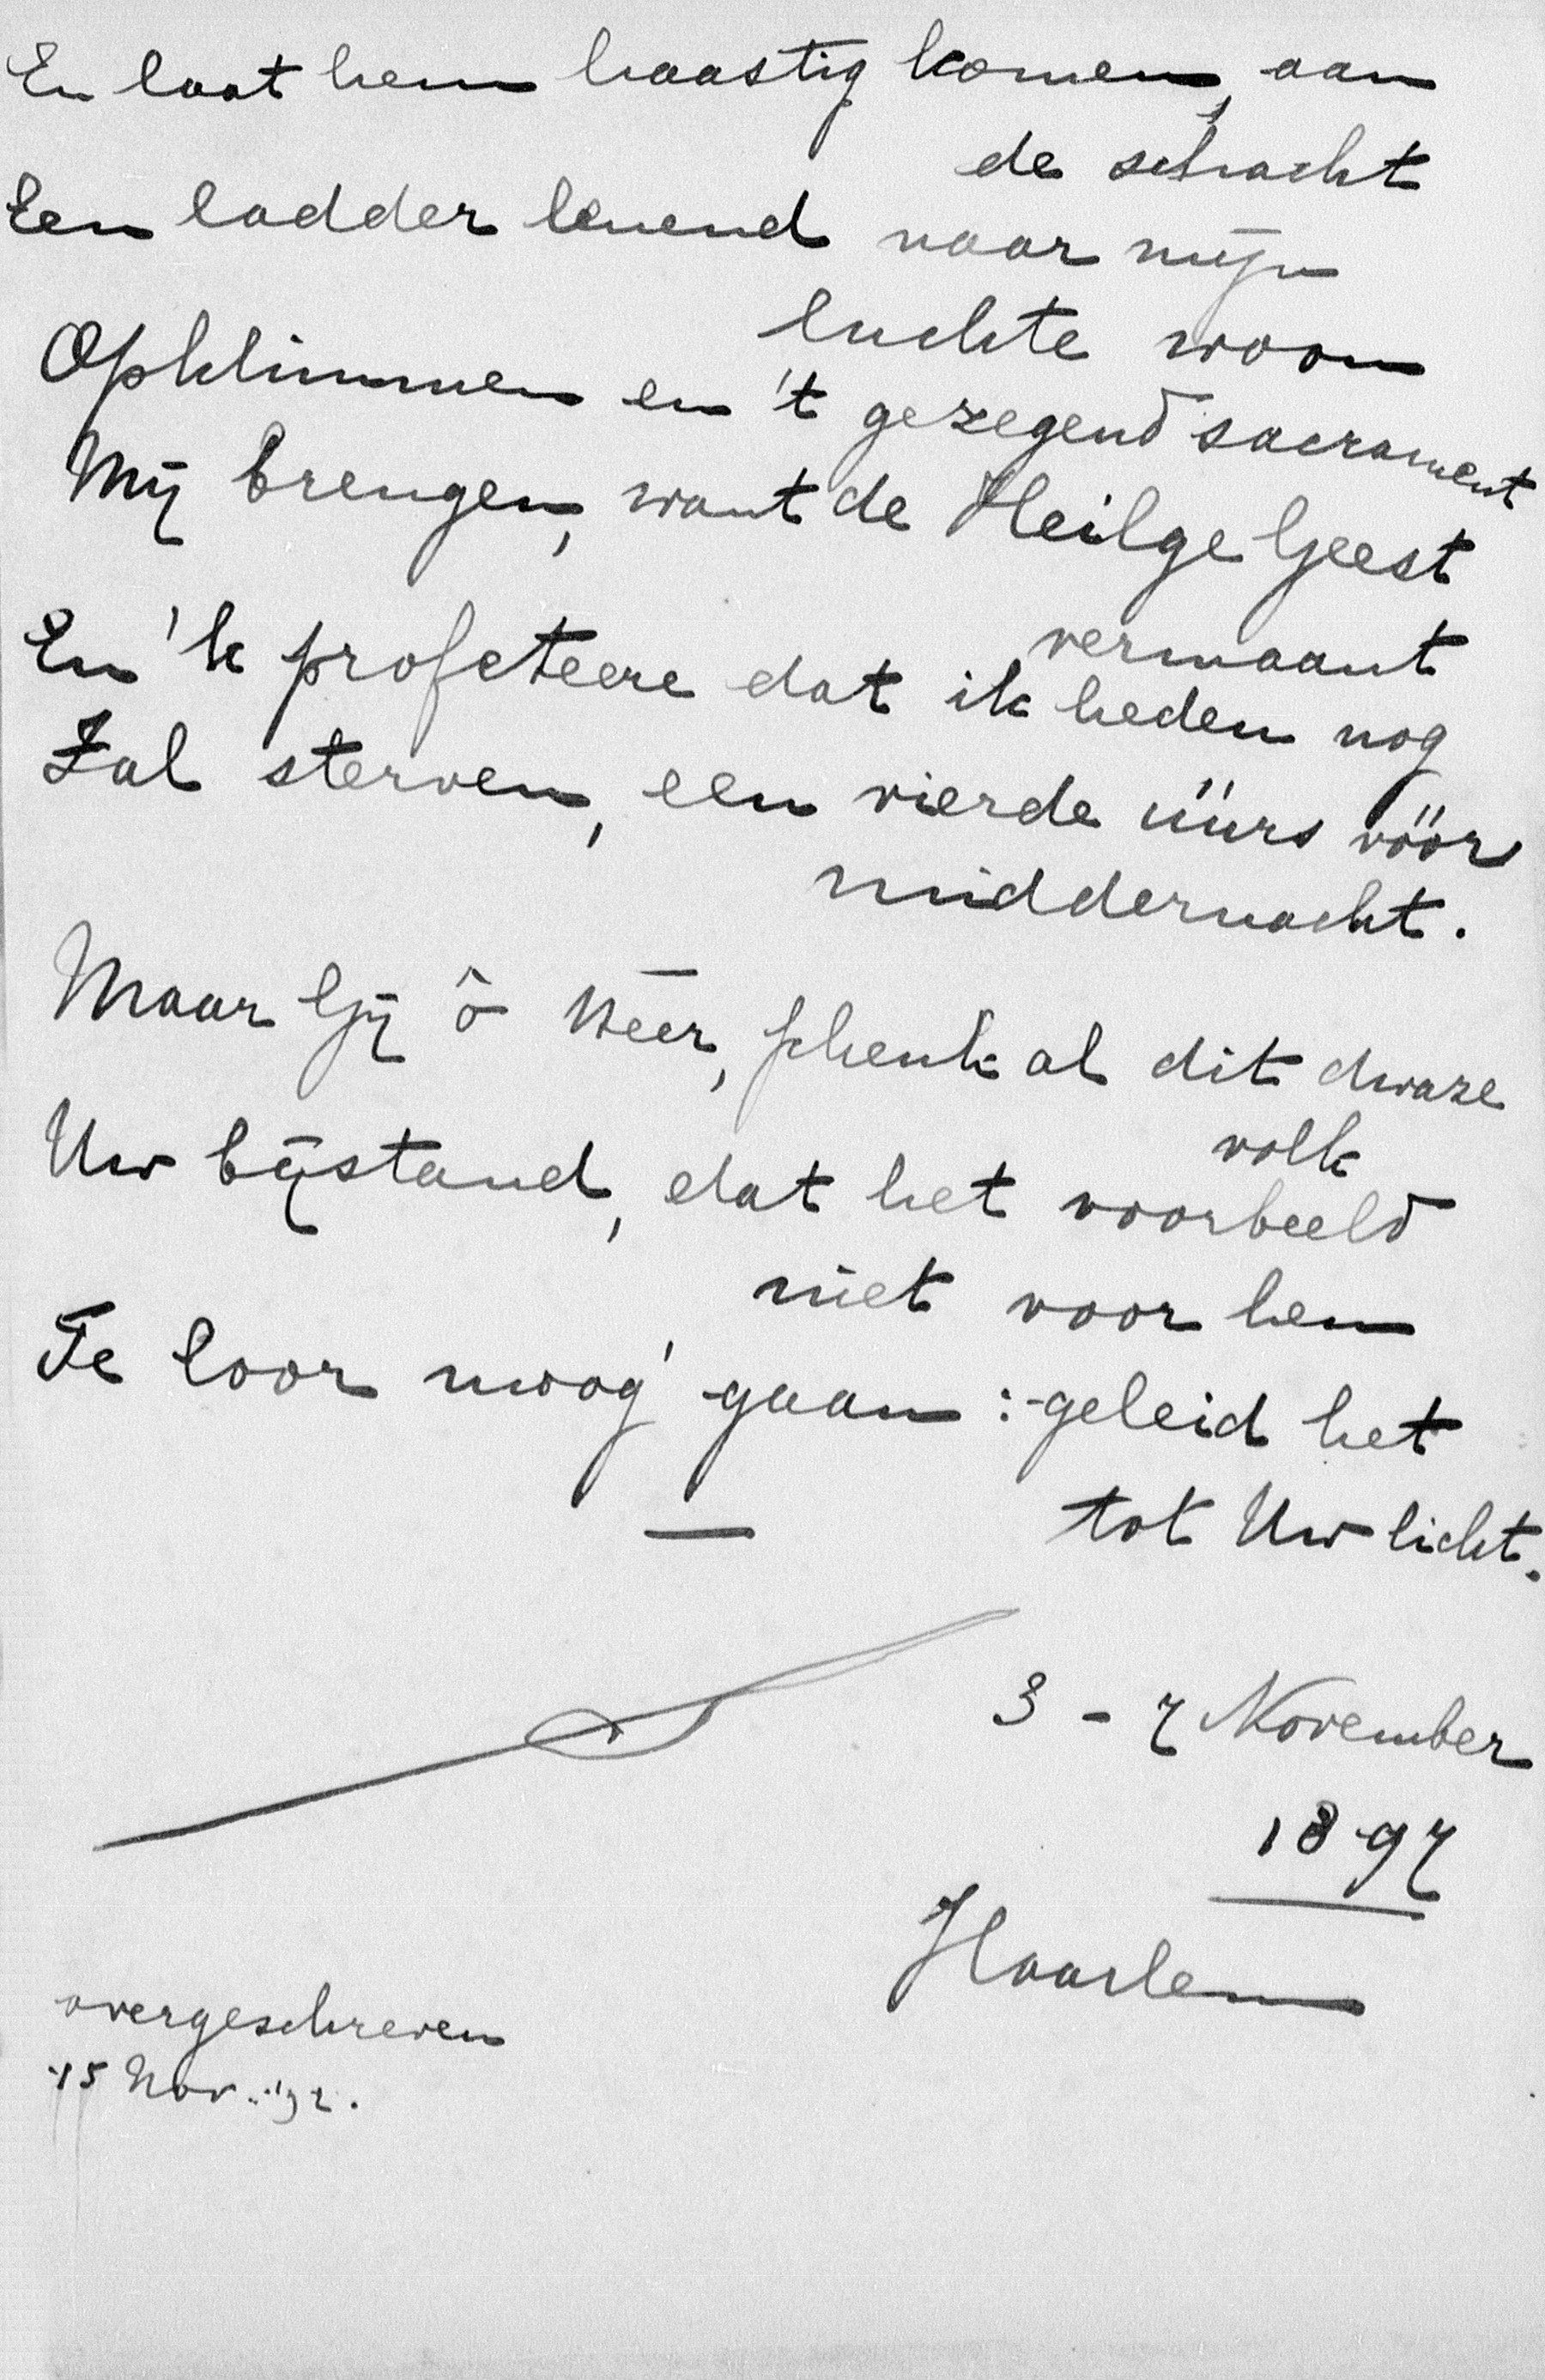 En laat hem haastig komen, aan
de schacht
Een ladder lenend naar mijn
luchte woon
Opklimmen en 't gezegend sacrament
Mij brengen, want de Heilge Geest
vermaant
En 'k profeteere dat ik heden nog
Zal sterven, een vierde üürs vöör
middernacht.
Maar Gij ô Heer, schenk al dit dwaze
volk
Uw bijstand, dat het voorbeeld
niet voor hem
Te loor moog' gaan :-geleid het
tot Uw licht.
3 - 7 November
1897
Haarlem
overgeschreven
15 Nov.